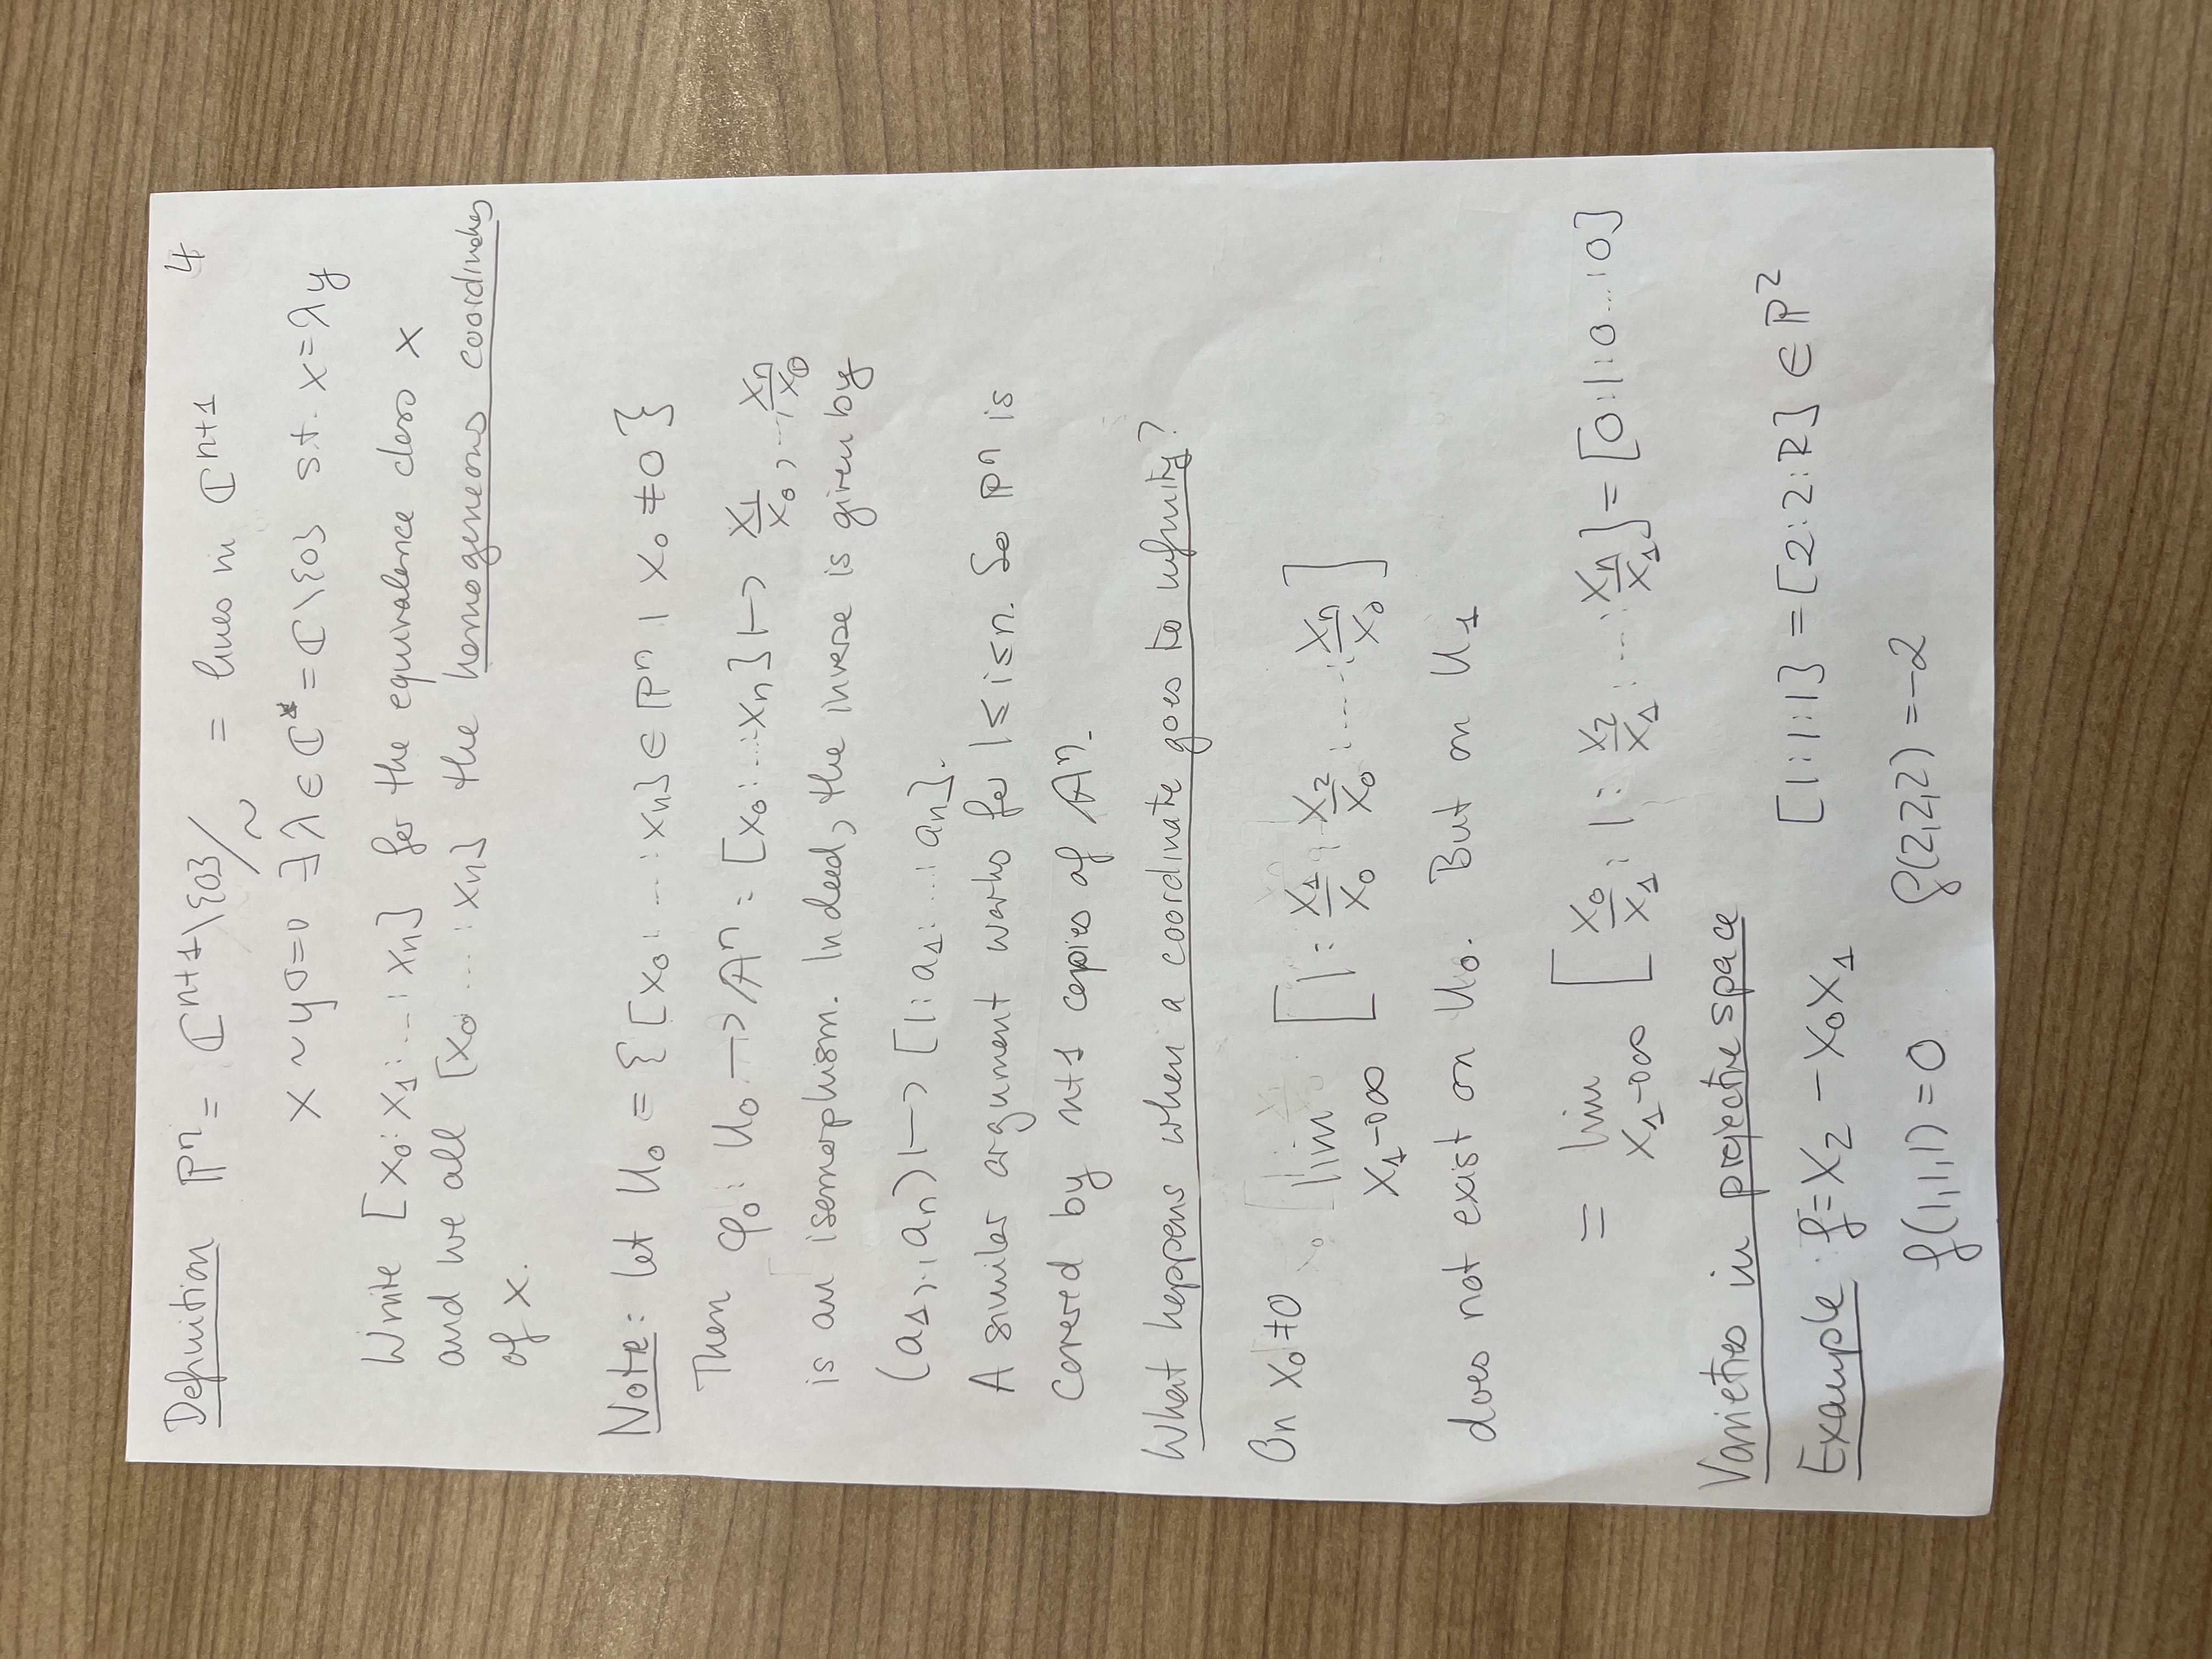 4
Definition ℙⁿ = ℂⁿ⁺¹\{0}/~ = lines in ℂⁿ⁺¹
x ~ y ⇔ ∃ λ ∈ ℂ* = ℂ\{0} s.t. x = λy
Write [x₀:x₁:...:xₙ] for the equivalence class x
and we all [x₀ ... :xₙ] the homogeneous coordinates
of x.
Note: let U₀ = {[x₀:...:xₙ] ∈ ℙⁿ | x₀ ≠ 0}
Then φ₀: U₀ → 𝔸ⁿ : [x₀:...:xₙ] ↦ x₁/x₀, ..., xₙ/x₀
is an isomorphism. Indeed, the inverse is given by
(a₁,..,aₙ) ↦ [1:a₁:...:aₙ].
A similar argument works for 1 ≤ i ≤ n. So ℙⁿ is
covered by n+1 copies of 𝔸ⁿ.
What happens when a coordinate goes to infinity?
On x₀ ≠ 0 lim x₁→∞ [1 : x₁/x₀ : x₂/x₀ : ... : xₙ/x₀]
does not exist on U₀. But on U₁
= lim x₁→∞ [x₀/x₁ : 1 : x₂/x₁ : ... : xₙ/x₁] = [0:1:0...:0]
Varieties in projective space
Example f = x₂ - x₀x₁ [1:1:1] = [2:2:2] ∈ ℙ²
f(1,1,1) = 0 f(2,2,2) = -2